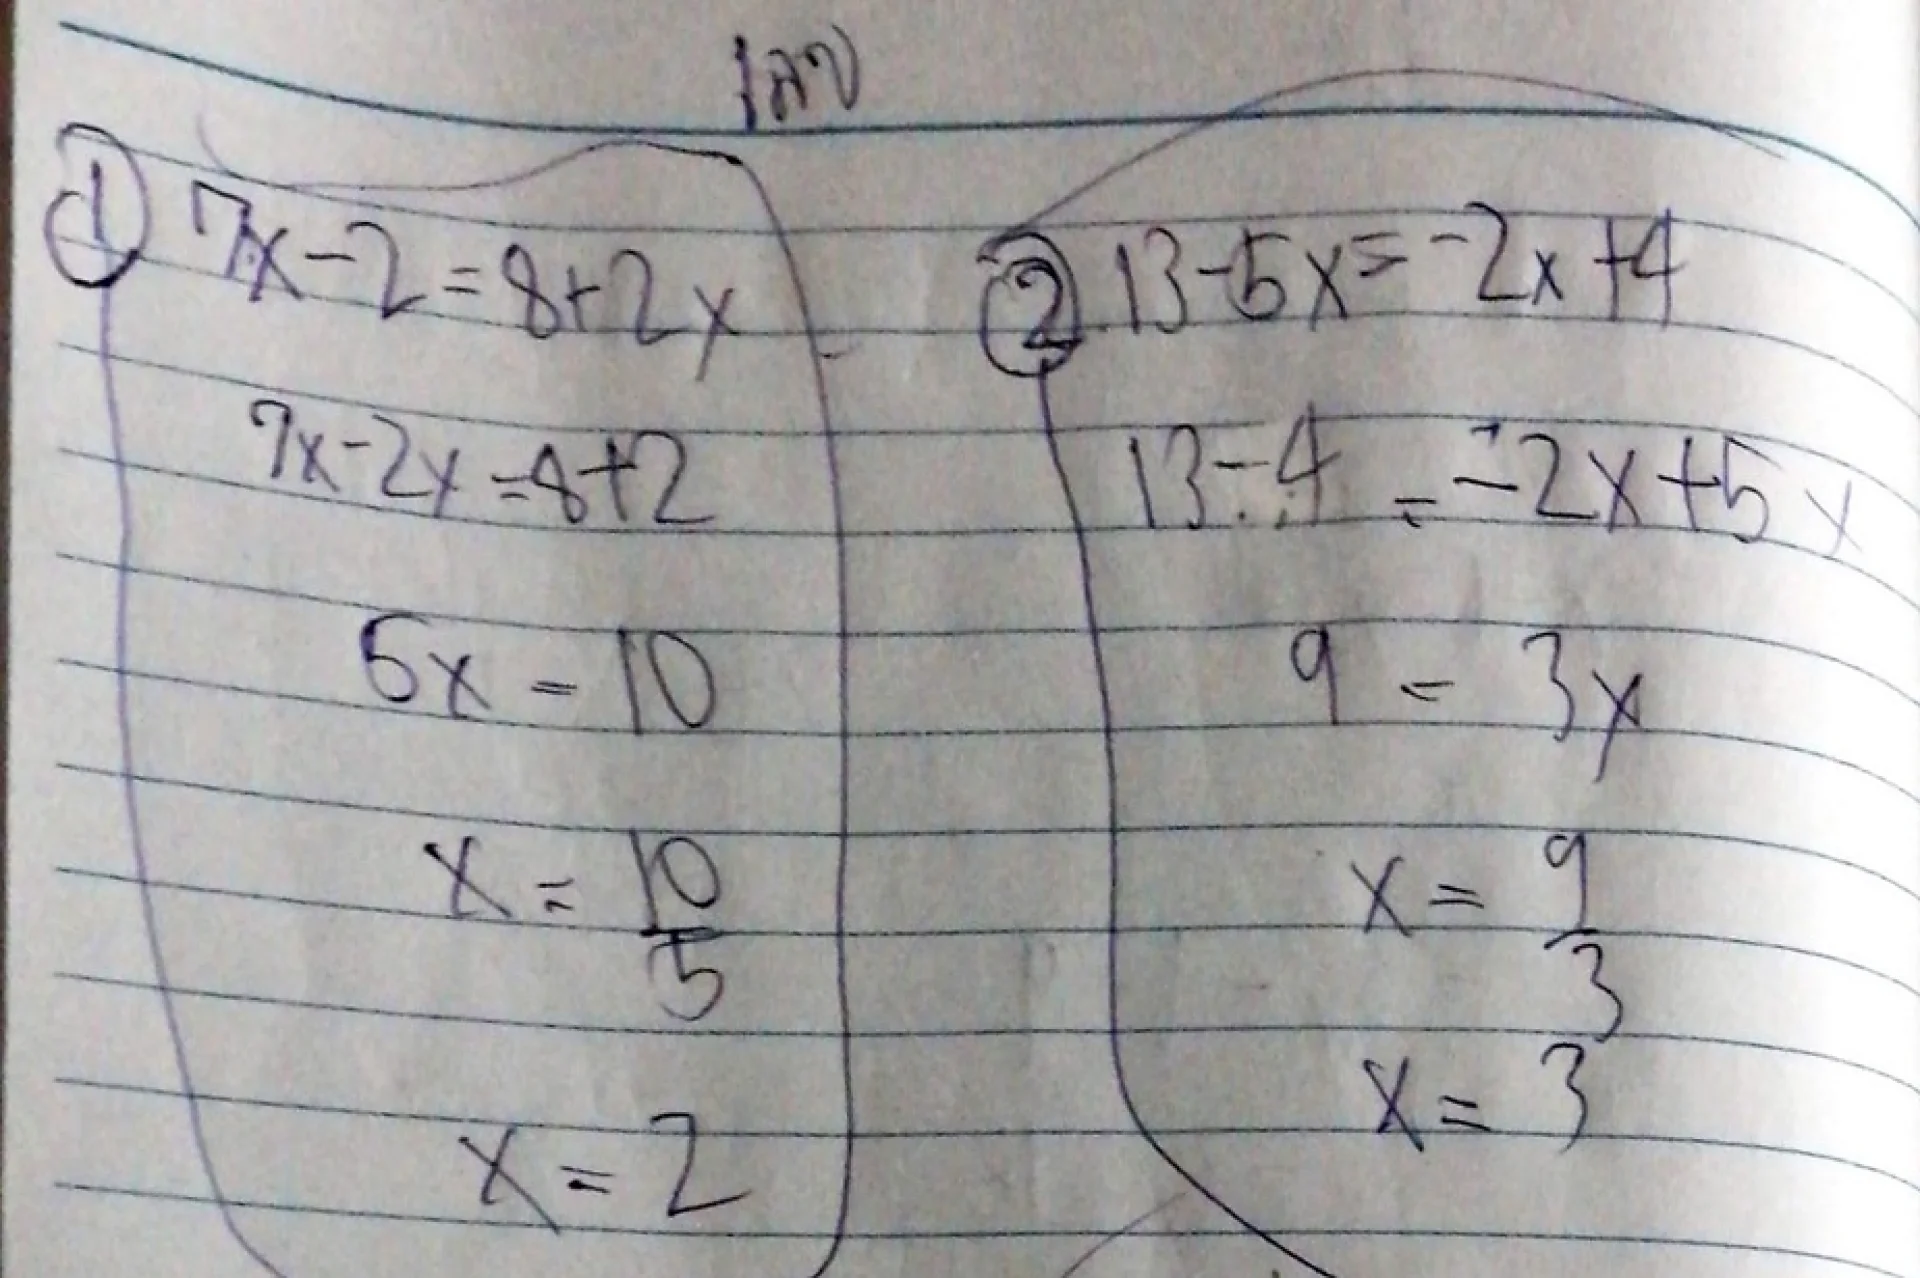 เลข
① 7x-2=8+2x
7x-2x=8+2
5x=10
x=10/5
x=2
② 13-5x=-2x+4
13-4=-2x+5x
9=3x
x=9/3
x=3